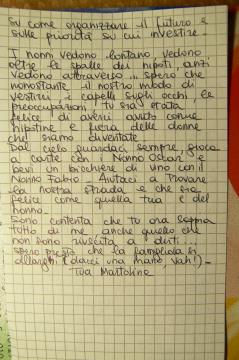 su come organizzare il futuro e
sulle priorità su cui investire.
I nonni vedono lontano, vedono
oltre le spalle dei nipoti, anzi
vedono attraverso... spero che
nonostante il nostro modo di
vestirci, i capelli sugli occhi, le
preoccupazioni, tu sia stata
felice di averci avuto come
nipotine e fiera delle donne
che siamo diventate.
Dal cielo guardaci sempre, gioca
a carte con il Nonno Oscar e
bevi un bicchiere di vino con il
Nonno Fabio. Aiutaci a trovare
la nostra strada e che sia
felice come quella tua e del
nonno.
Sono contenta che tu ora sappia
tutto di me, anche quello che
non sono riuscita a dirti...
spero presto che la famigliola si
allarghi (dacci una mano, vah!) -
Tua Martolina